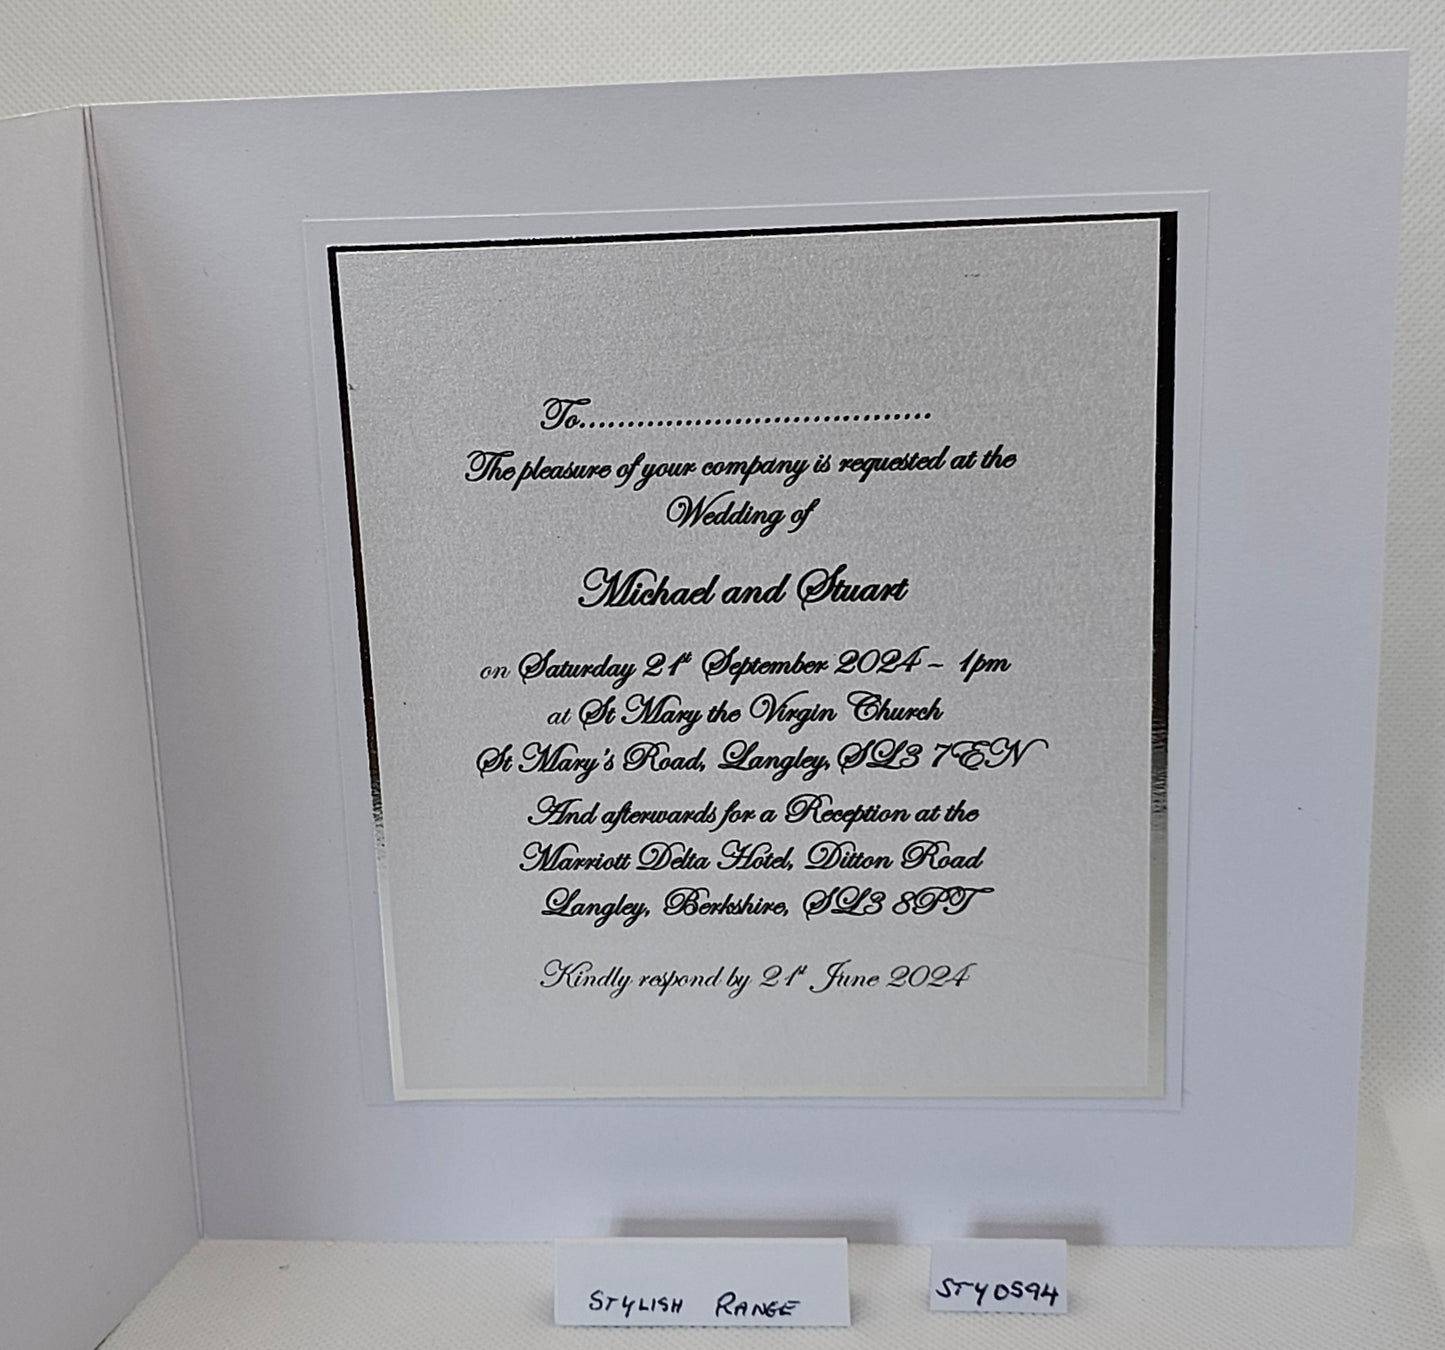 To...................................
The pleasure of your company is requested at the
Wedding of
Michael and Stuart
on Saturday 21st September 2024 ~ 1pm
at St Mary the Virgin Church
St Mary's Road, Langley, SL3 7EN
And afterwards for a Reception at the
Marriott Delta Hotel, Ditton Road
Langley, Berkshire, SL3 8PT
Kindly respond by 21st June 2024
STYLISH RANGE
STY0594